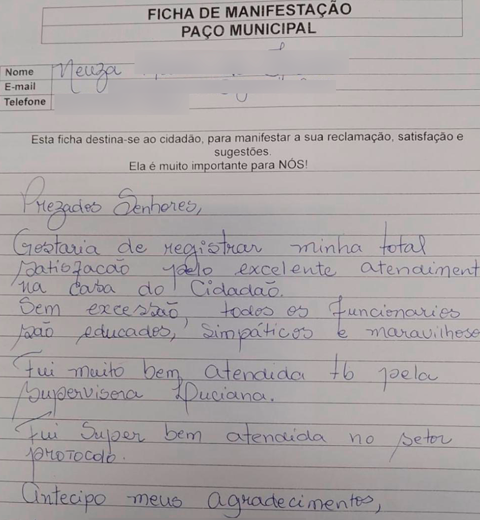 FICHA DE MANIFESTAÇÃO
PAÇO MUNICIPAL
Nome Neuza
E-mail
Telefone
Esta ficha destina-se ao cidadão, para manifestar a sua reclamação, satisfação e
sugestões.
Ela é muito importante para NÓS!
Prezados Senhores,
Gostaria de registrar minha total
satisfacão pelo excelente atendiment
na Casa do Cidadão.
Sem excessão, todos os funcionarios
são educados, simpáticos e maravilhoso
Fui muito bem atendida tb pela
supervisora Luciana.
Fui super bem atendida no setor
protocolo.
Antecipo meus agradecimentos,